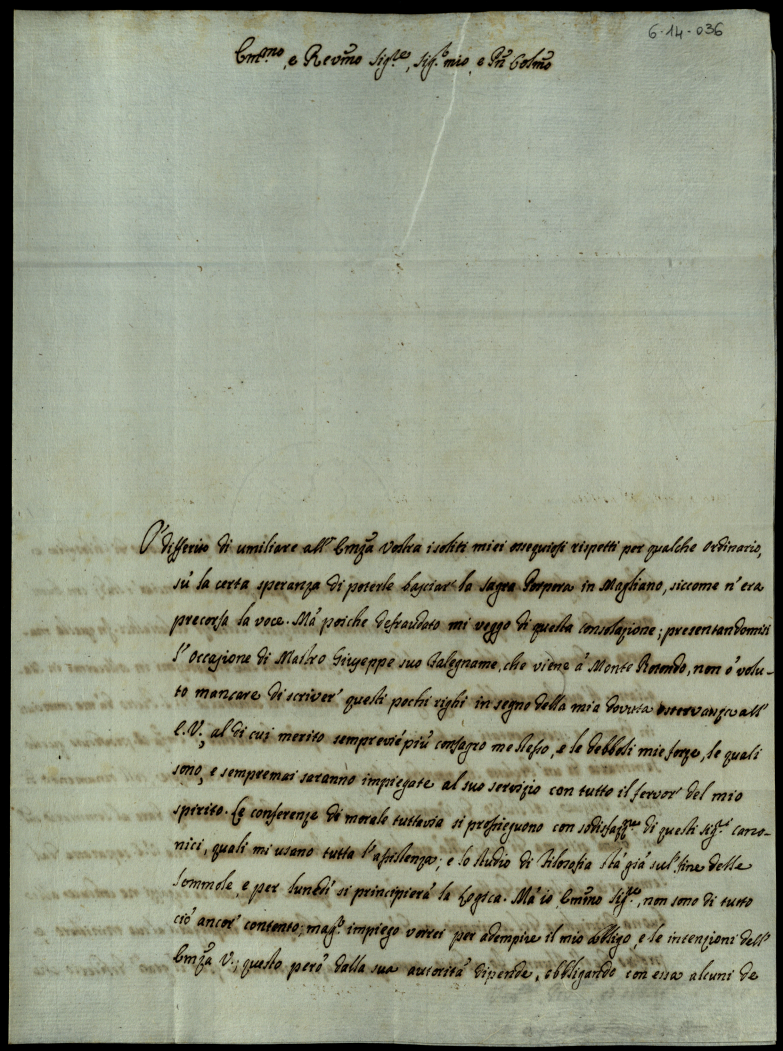 6-14-036
Em.mo, e Reviño Sig.re, Sig.r mio, e Pñ Colmo
Ò differito di umiliare all' Emza Vostra i soliti miei ossequiosi rispetti per qualche ordinario,
sù la certa speranza di poterle basciar' la sagra Porpora in Magliano, siccome n'era
precorsa la voce. Mà poiche defraudato mi veggo di questa consolazione; presentandomisi
l'occasione di Mastro Giuseppe suo Falegname, che viene à Monte Rotondo, non ò volu-
to mancare di scriver' questi pochi righi in segno della mia dovuta osservanza all'
E.V., al di cui merito sempreviè più consagro me stesso, e le debboli mie forze, le quali
sono, e sempremai saranno impiegate al suo servizio con tutto il fervor' del mio
spirito. Le conferenze di morale tuttavia si prosieguono con sodisfazz.ne di questi Sig.ri cano-
nici, quali mi usano tutta l'assistenza; e lo studio di Filosofia stà già sul' fine delle
Sommole, e per lunedì si principierà la Logica. Mà io, Emiño Sig.re, non sono di tutto
ciò ancor' contento; mag.r impiego vorrei per adempire il mio obbligo, e le intenzioni dell'
Emza V.; questo però dalla sua autorità dipende, obbligando con essa alcuni de